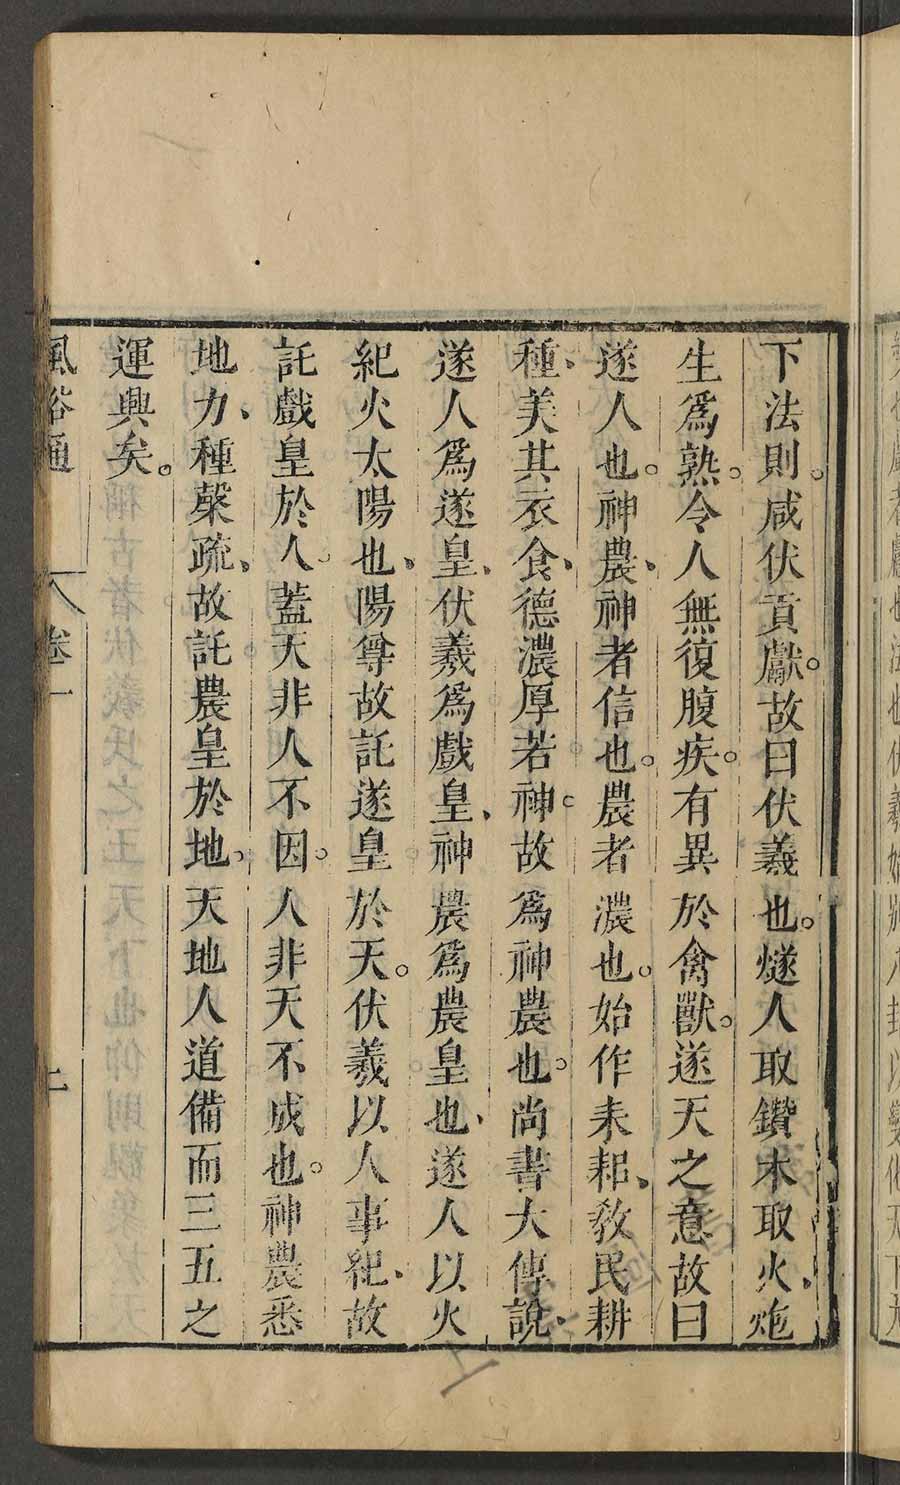 下法則。咸伏貢獻。故曰伏羲也。燧人取鑽木取火、炮
生爲熟。令人無復腹疾。有異於禽獸。遂天之意故曰
遂人也。神農、神者信也。農者濃也。始作耒耜、敎民耕
種、美其衣食、德濃厚若神。故爲神農也。尚書大傳說、
遂人爲遂皇、伏羲爲戲皇、神農爲農皇也、遂人以火
紀火太陽也、陽尊故託遂皇於天。伏羲以人事紀、故
託戲皇於人。蓋天非人不因。人非天不成也。神農悉
地力、種穀疏、故託農皇於地。天地人道備而三五之
運興矣。
風俗通 卷一